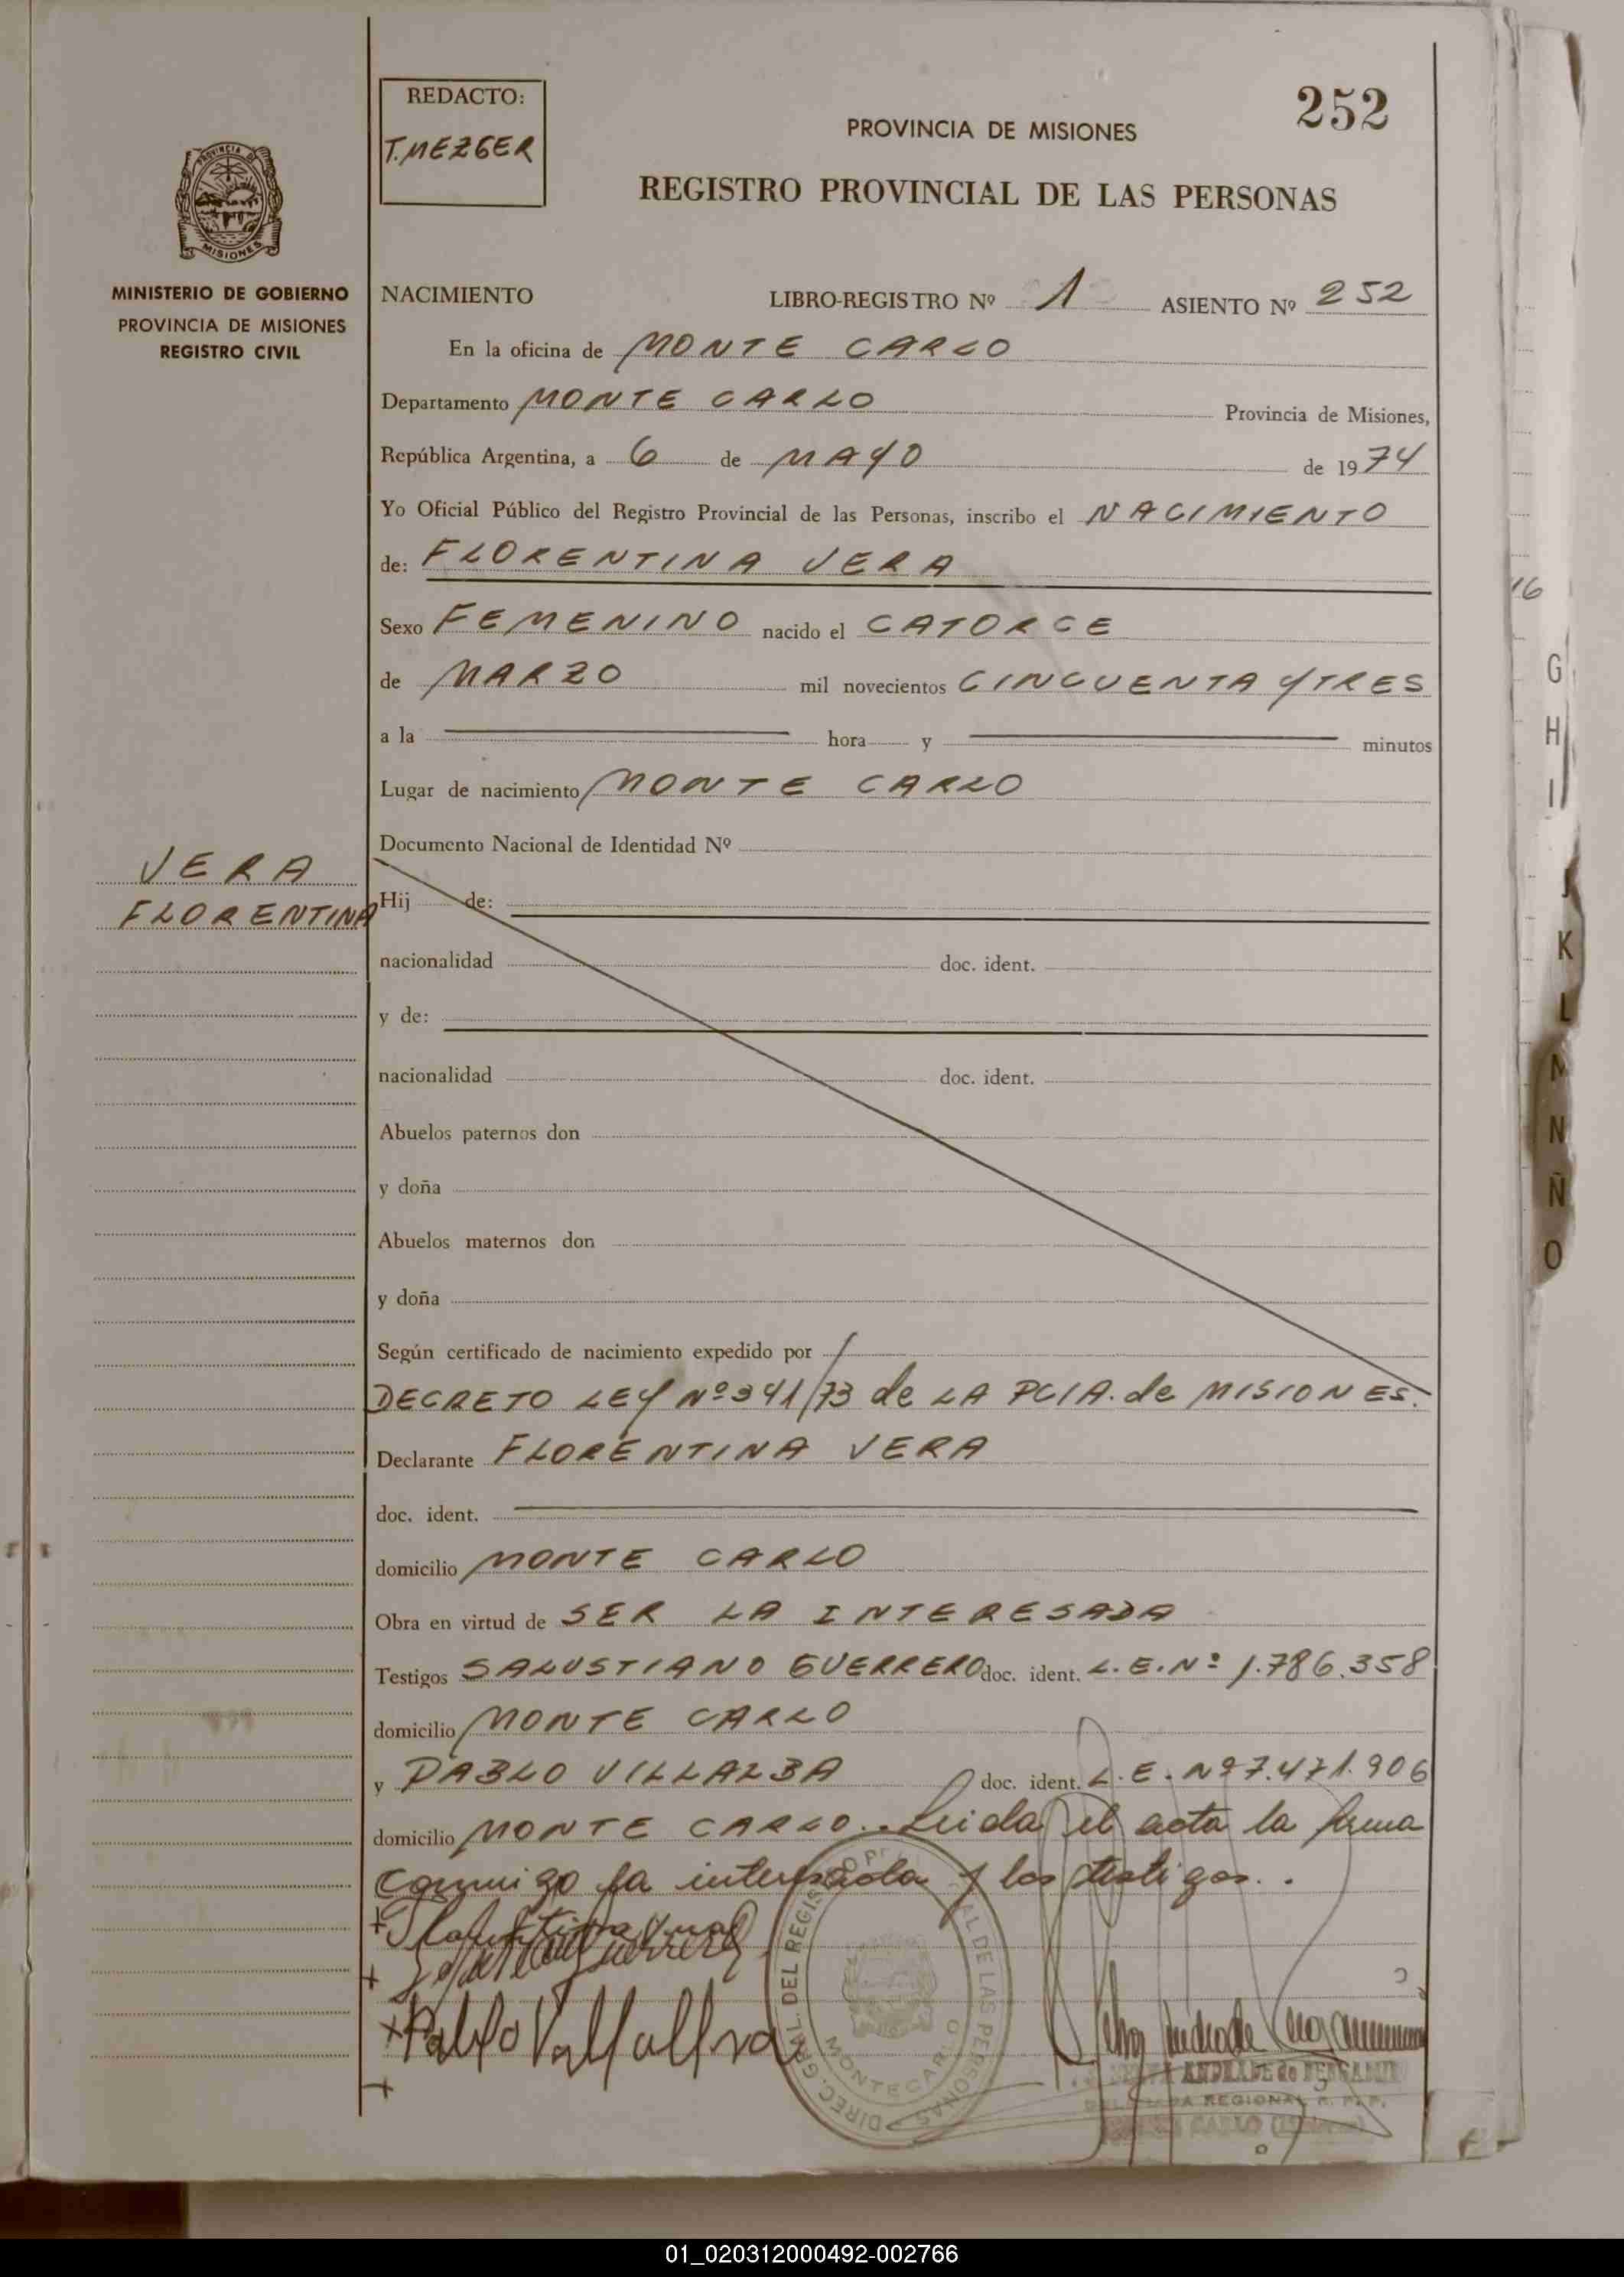 REDACTO:
T. MEZGER
252
PROVINCIA DE MISIONES
REGISTRO PROVINCIAL DE LAS PERSONAS
PROVINCIA DE
MISIONES
MINISTERIO DE GOBIERNO
PROVINCIA DE MISIONES
REGISTRO CIVIL
NACIMIENTO LIBRO-REGISTRO Nº 1 ASIENTO Nº 252
En la oficina de MONTE CARLO
Departamento MONTE CARLO Provincia de Misiones,
República Argentina, a 6 de MAYO de 1974
Yo Oficial Público del Registro Provincial de las Personas, inscribo el NACIMIENTO
de: FLORENTINA VERA
Sexo FEMENINO nacido el CATORCE
de MARZO mil novecientos CINCUENTA Y TRES
a la hora y minutos
Lugar de nacimiento MONTE CARLO
Documento Nacional de Identidad Nº
VERA
FLORENTINA
Hij de:
nacionalidad doc. ident.
y de:
nacionalidad doc. ident.
Abuelos paternos don
y doña
Abuelos maternos don
y doña
Según certificado de nacimiento expedido por
DECRETO LEY Nº 341/73 de LA PCIA. de MISIONES.
Declarante FLORENTINA VERA
doc. ident.
domicilio MONTE CARLO
Obra en virtud de SER LA INTERESADA
Testigos SALUSTIANO GUERRERO doc. ident. L.E. Nº 1.786.358
domicilio MONTE CARLO
y PABLO VILLALBA doc. ident. L.E. Nº 7.471.906
domicilio MONTE CARLO.. Leida el acta la firma
conmigo la interesada y los testigos..
Pablo Villalba
DIREC. GRAL. DEL REGISTRO PROVINCIAL DE LAS PERSONAS
MONTECARLO
ANDRADE de BERGAMIN
REGIONAL R. P. P.
CARLO
16
G
H
I
J
K
L
M
N
Ñ
O
01_020312000492-002766